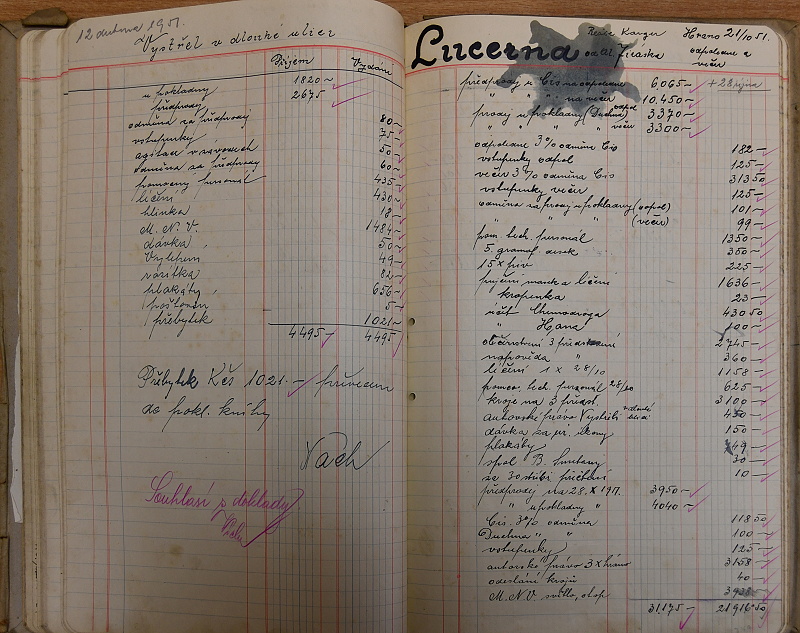 12 dubna 1951.
Výstřel v dlouhé ulici
Příjem Vydání
u pokladny 1820~
předprodej 2675
odměna za předprodej 80~
vstupenky 75~
agitace v závodech 50~
odměna za předprodej 60~
pomocný personál 435~
líčení 430~
hlinka 18~
M. N. V. 1484~
dávka 50~
Vylehem 49~
razítka 82~
plakáty 656~
poštovné 5~
přebytek 1021~
4495~ 4495
Přebytek Kčs 1021.— převeden
do pokl. knihy
Vach
Souhlasí s doklady
Lucerna
od Al. Jiráska
Režie Kangr
Hráno 21/10 51.
odpoledne a
večer
+ 28 října
předprodej u Čis na odpoledne 6.065~
" " " na večer 10.450~
prodej u pokladny (Duchna) odpol 3370~
" " " " večer 3300~
odpoledne 3% odměna Čis 182~
vstupenky odpol 125~
večer 3% odměna Čis 313 50
vstupenky večer 125~
odměna za prodej u pokladny (odpol) 101~
" " " (večer) 99~
pom. tech. personál 1350~
5. gramof. desek 350~
15 x piv 225~
půjčení masek a líčení 1636~
kropenka 23~
účet Chemodroga 430 50
" Hana 100~
občerstvení 3 představení 2745~
nápověda " 360~
líčení 1 x 28/10 1158~
pomoc. tech. personál 28/10 625~
kroje na 3 předst. 3100~
autorské právo Výstřel v dlouhé ulici 450~
dávka za úř. úkony 150~
plakáty 49~
spol B. Smetany 30~
za 30 stůlů půjčení 10~
předprodej na 28. X 1951. 3950~
" u pokladny " 4040~
Čis. 3% odměna 118 50
Duchna " " 100~
vstupenky 125~
autorské právo 3 x hráno 3158~
odeslání krojů 40~
M. N. V. světlo, otop
31.175~ 21916.50